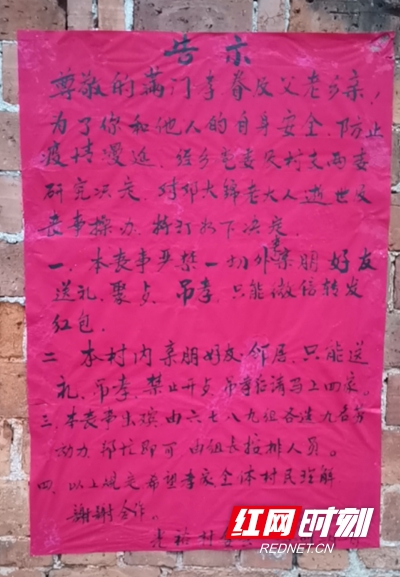 告示
尊敬的满门孝眷及父老乡亲，
为了你和他人的自身安全，防止
疫情漫延，经乡党委及村支两委
研究决定，对邓大辉老大人逝世及
丧事操办，特订如下决定
一、本丧事严禁一切外来亲朋好友
送礼、聚点、吊孝，只能微信转发
红包．
二 本村内亲朋好友、邻居，只能送
礼、吊孝，禁止开点，吊孝后请马上回家。
三、本丧事出殡由六七八九组各派九名劳
动力，帮忙即可由组长按排人员。
四、以上规定希望孝家全体村民理解
谢谢合作。
村
红网时刻
REDNET.CN